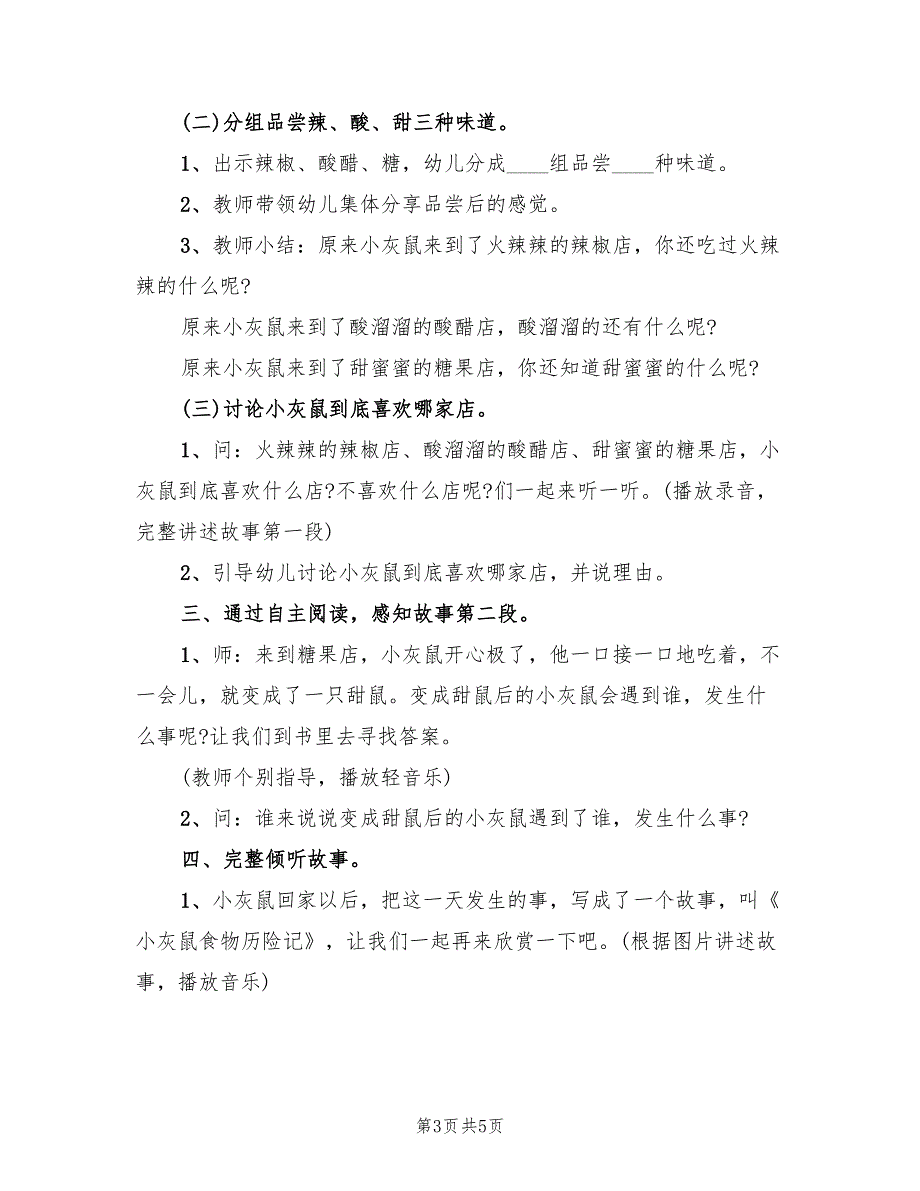 (二)分组品尝辣、酸、甜三种味道。
1、出示辣椒、酸醋、糖，幼儿分成____组品尝____种味道。
2、教师带领幼儿集体分享品尝后的感觉。
3、教师小结：原来小灰鼠来到了火辣辣的辣椒店，你还吃过火辣
辣的什么呢?
原来小灰鼠来到了酸溜溜的酸醋店，酸溜溜的还有什么呢?
原来小灰鼠来到了甜蜜蜜的糖果店，你还知道甜蜜蜜的什么呢?
(三)讨论小灰鼠到底喜欢哪家店。
1、问：火辣辣的辣椒店、酸溜溜的酸醋店、甜蜜蜜的糖果店，小
灰鼠到底喜欢什么店?不喜欢什么店呢?们一起来听一听。(播放录音，
完整讲述故事第一段)
2、引导幼儿讨论小灰鼠到底喜欢哪家店，并说理由。
三、通过自主阅读，感知故事第二段。
1、师：来到糖果店，小灰鼠开心极了，他一口接一口地吃着，不
一会儿，就变成了一只甜鼠。变成甜鼠后的小灰鼠会遇到谁，发生什
么事呢?让我们到书里去寻找答案。
(教师个别指导，播放轻音乐)
2、问：谁来说说变成甜鼠后的小灰鼠遇到了谁，发生什么事?
四、完整倾听故事。
1、小灰鼠回家以后，把这一天发生的事，写成了一个故事，叫《
小灰鼠食物历险记》，让我们一起再来欣赏一下吧。(根据图片讲述故
事，播放音乐)
第3页共5页